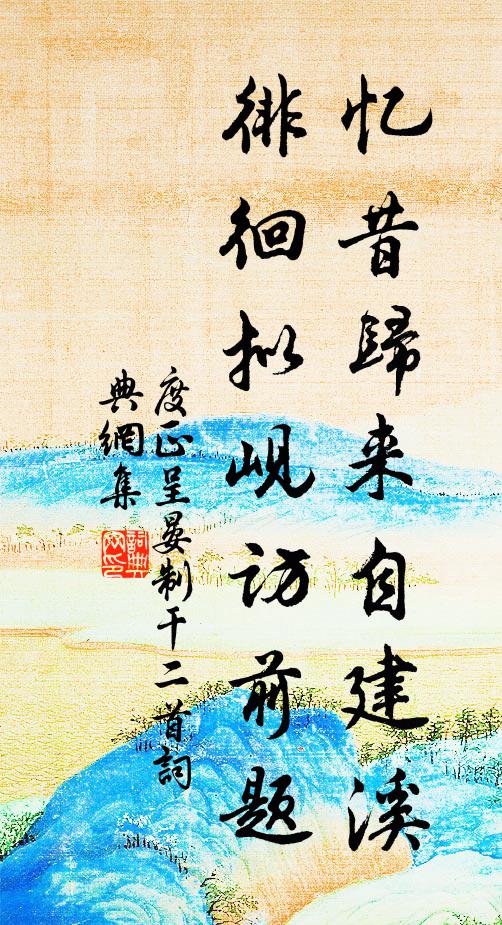 忆昔歸来自建溪
徘徊拟岘访前题
度正呈晏制干二首詞
典網集
詞典
网印